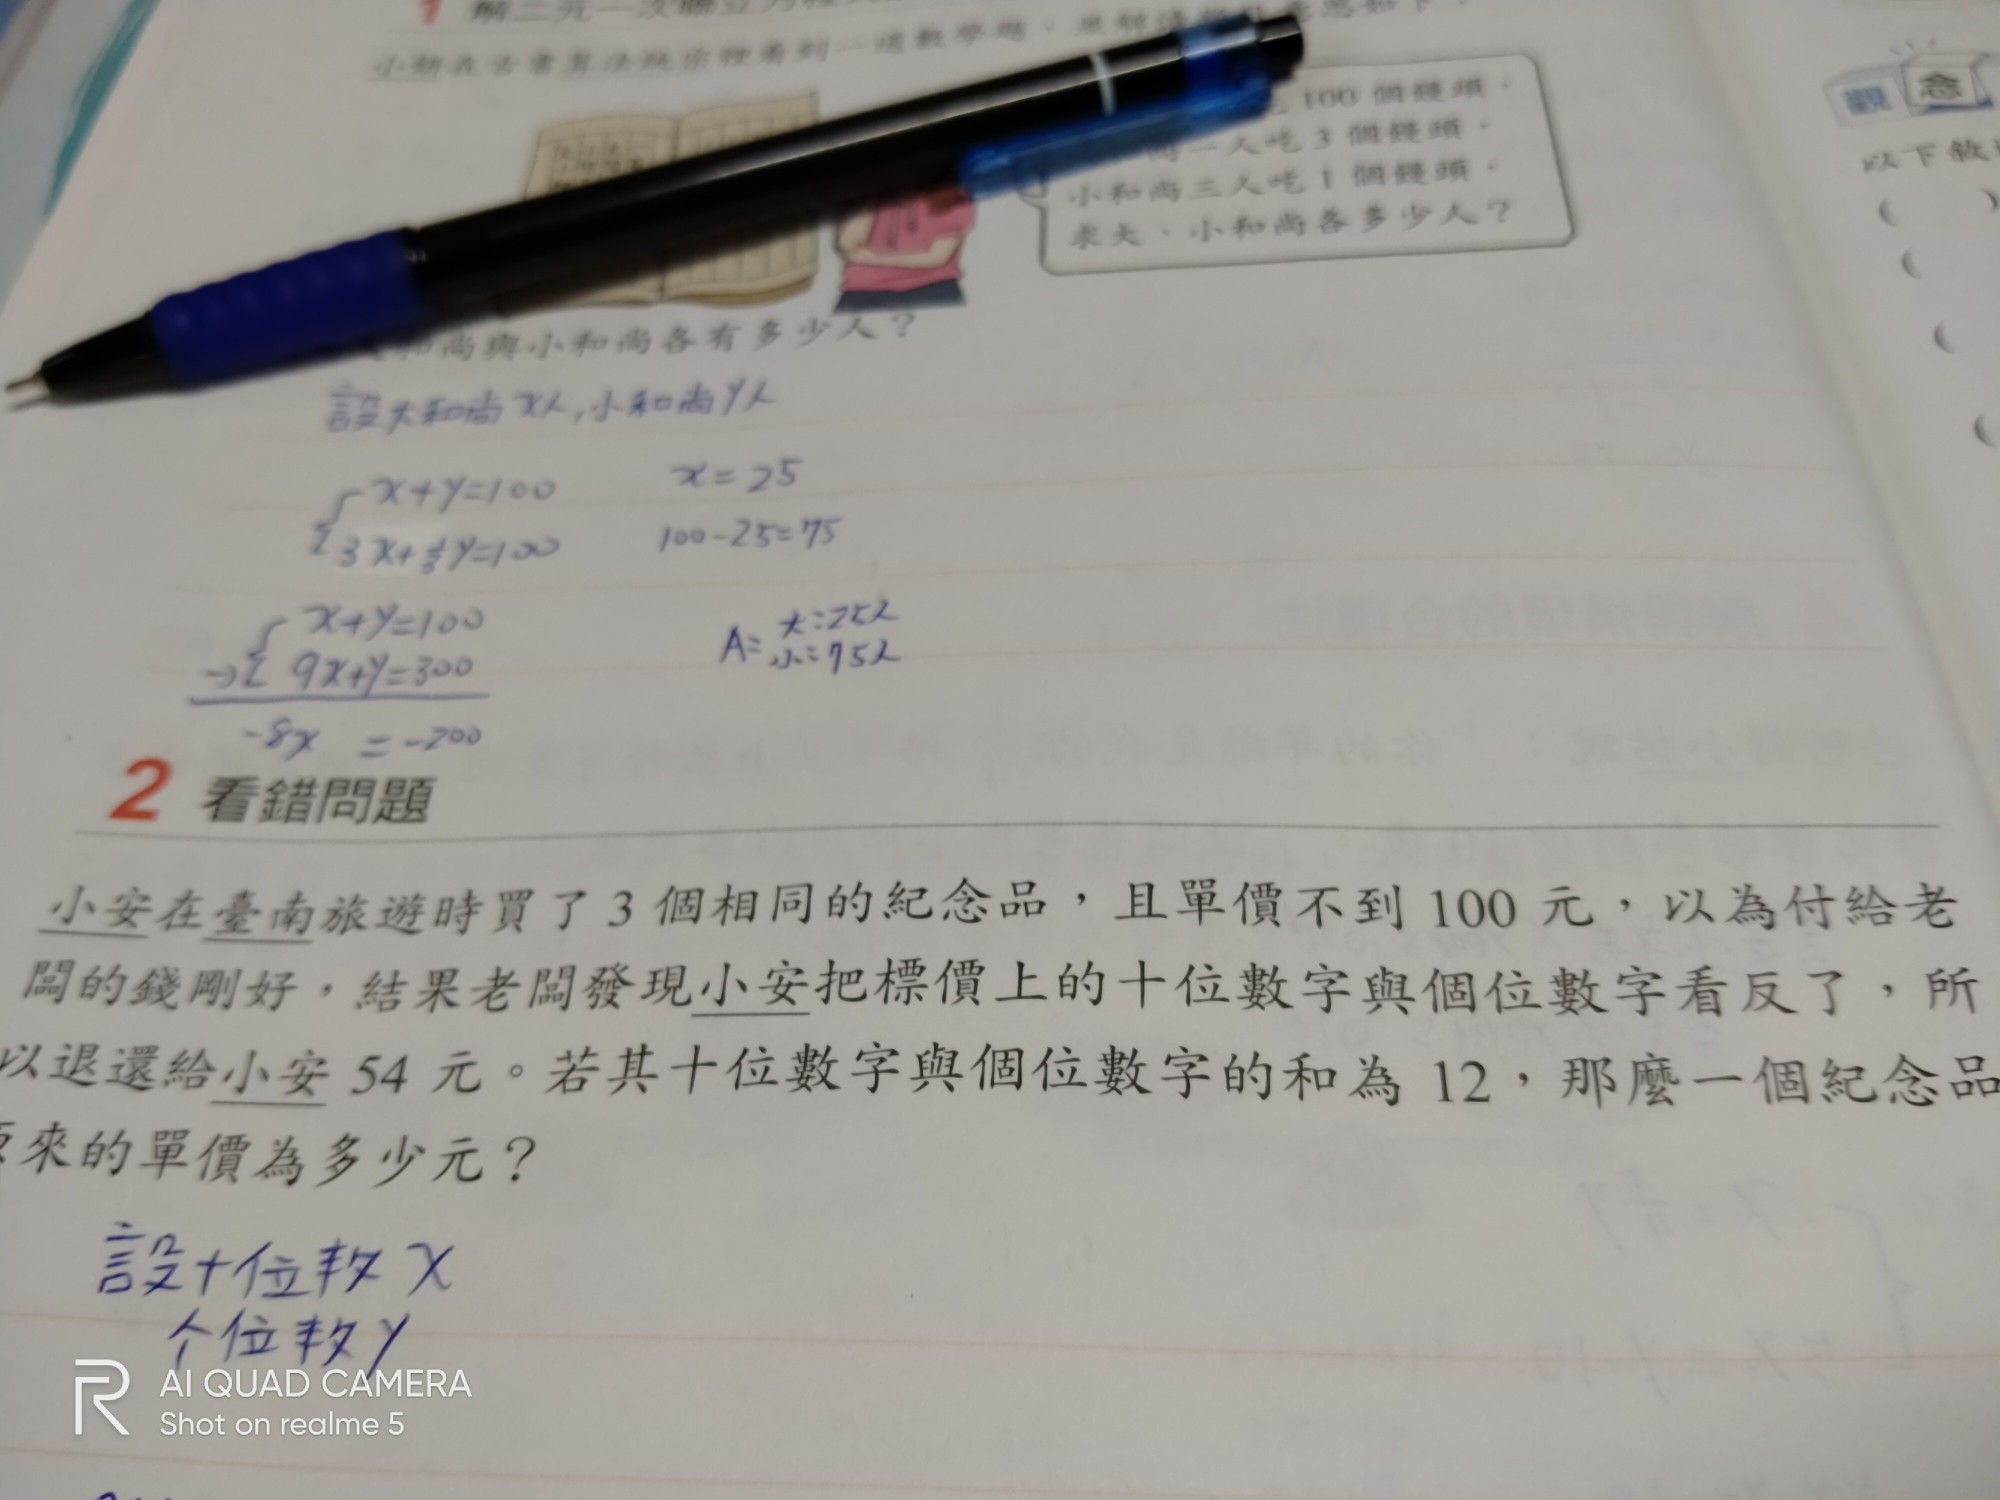 1 解二元一次聯立方程式
小
100個饅頭，
一人吃3個饅頭，
小和尚三人吃1個饅頭，
求大、小和尚各多少人？
和尚與小和尚各有多少人？
設大和尚x人,小和尚y人
x+y=100
x=25
3x+⅓y=100
100-25=75
x+y=100
-) 9x+y=300
-8x =-200
A= 大:25人
小:75人
2 看錯問題
小安在臺南旅遊時買了3個相同的紀念品，且單價不到100元，以為付給老
闆的錢剛好，結果老闆發現小安把標價上的十位數字與個位數字看反了，所
以退還給小安54元。若其十位數字與個位數字的和為12，那麼一個紀念品
來的單價為多少元？
設十位數x
个位數y
觀念
以下敘
(  )
(
(
(
R
AI QUAD CAMERA
Shot on realme 5